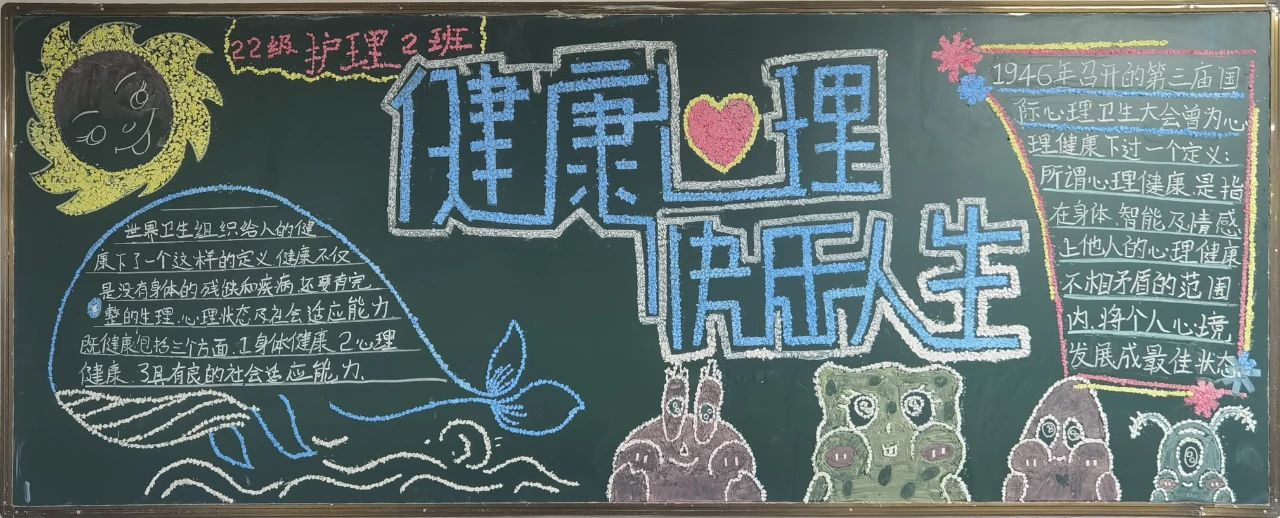 22级护理2班
健康心理
快乐人生
世界卫生组织给人的健
康下了一个这样的定义健康不仅
是没有身体的残缺和疾病,还要有完
整的生理.心理状态及社会适应能力
既健康包括三个方面.1身体健康2心理
健康.3具有良的社会适应能力.
1946年召开的第三届国
际心理卫生大会曾为心
理健康下过一个定义:
所谓心理健康是指
在身体.智能及情感
上他人的心理健康
不相矛盾的范围
内.将个人心境
发展成最佳状态